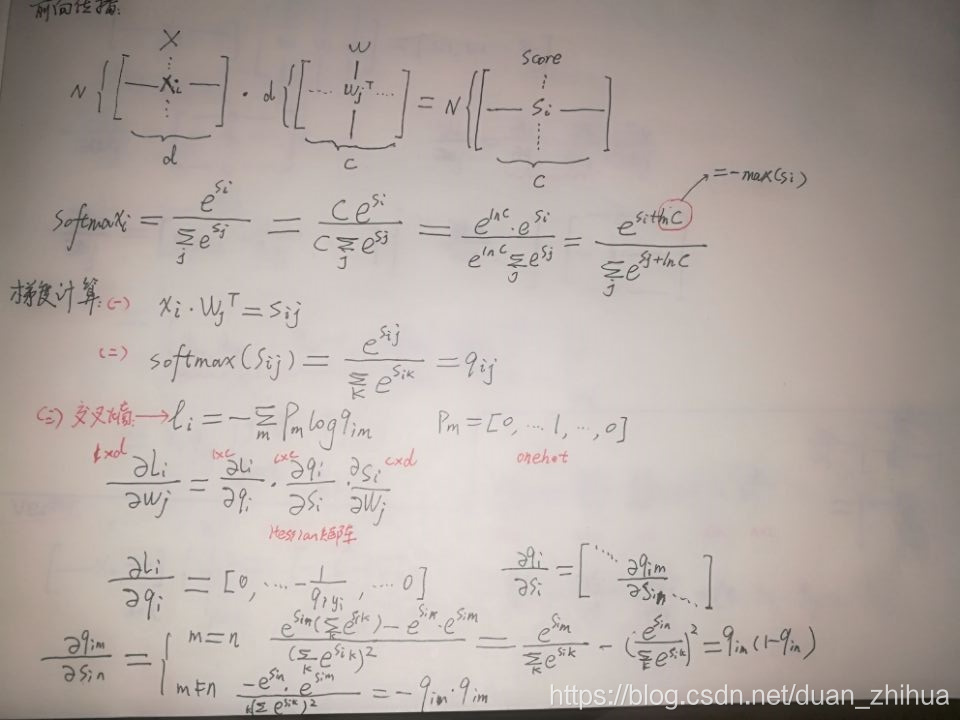 前向传播:
X W Score
N { [ — xi — ] · d { [ ···· wjᵀ ···· ] = N { [ — Si — ]
d C C
= -max(Si)
softmaxi = e^{Si} / Σ_j e^{Sj} = C e^{Si} / C Σ_j e^{Sj} = e^{lnC}·e^{Si} / e^{lnC} Σ_j e^{Sj} = e^{Si+lnC} / Σ_j e^{Sj+lnC}
梯度计算: (一) xi · wjᵀ = Sij
(二) softmax(Sij) = e^{Sij} / Σ_k e^{Sik} = qij
(三) 交叉熵 → li = -Σ_m Pm log qim Pm = [0, ··· 1, ··, 0]
onehot
1xd 1xc cxc cxd
∂Li/∂Wj = ∂Li/∂qi · ∂qi/∂Si · ∂Si/∂Wj
Hessian矩阵
∂Li/∂qi = [0, ···· -1/qiyi, ···· 0] ∂qi/∂Si = [ ···· ∂qim/∂Sin ···· ]
∂qim/∂Sin = { m=n (e^{Sin}(Σ_k e^{Sik}) - e^{Sin}·e^{Sim}) / (Σ_k e^{Sik})² = e^{Sim} / Σ_k e^{Sik} - (e^{Sin} / Σ_k e^{Sik})² = qim(1-qin)
m≠n -e^{Sin}·e^{Sim} / (Σ e^{Sik})² = -qim·qim
https://blog.csdn.net/duan_zhihua